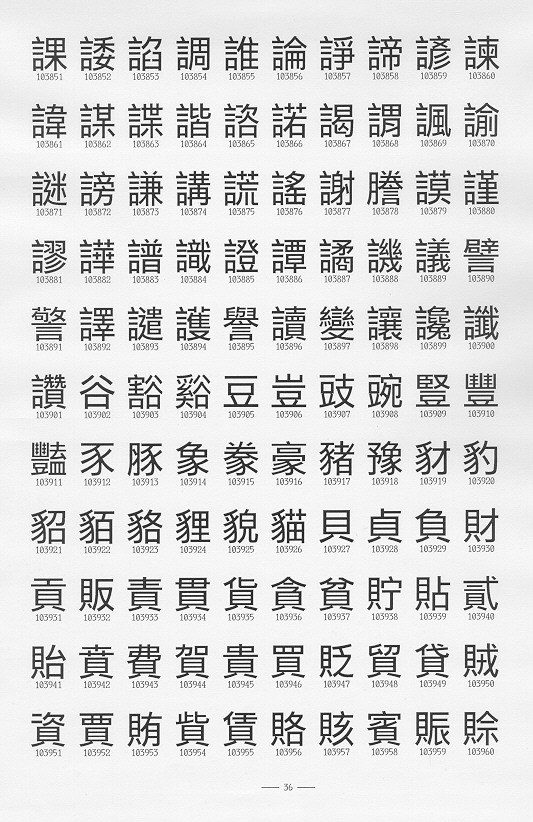 課 諉 諂 調 誰 論 諍 諦 諺 諫
103851 103852 103853 103854 103855 103856 103857 103858 103859 103860
諱 謀 諜 諧 諮 諾 謁 謂 諷 諭
103861 103862 103863 103864 103865 103866 103867 103868 103869 103870
謎 謗 謙 講 謊 謠 謝 謄 謨 謹
103871 103872 103873 103874 103875 103876 103877 103878 103879 103880
謬 譁 譜 識 證 譚 譎 譏 議 譬
103881 103882 103883 103884 103885 103886 103887 103888 103889 103890
警 譯 譴 護 譽 讀 變 讓 讒 讖
103891 103892 103893 103894 103895 103896 103897 103898 103899 103900
讚 谷 豁 谿 豆 豈 豉 豌 豎 豐
103901 103902 103903 103904 103905 103906 103907 103908 103909 103910
豔 豕 豚 象 豢 豪 豬 豫 豺 豹
103911 103912 103913 103914 103915 103916 103917 103918 103919 103920
貂 貊 貉 貍 貌 貓 貝 貞 負 財
103921 103922 103923 103924 103925 103926 103927 103928 103929 103930
貢 販 責 貫 貨 貪 貧 貯 貼 貳
103931 103932 103933 103934 103935 103936 103937 103938 103939 103940
貽 賁 費 賀 貴 買 貶 貿 貸 賊
103941 103942 103943 103944 103945 103946 103947 103948 103949 103950
資 賈 賄 貲 賃 賂 賅 賓 賑 賒
103951 103952 103953 103954 103955 103956 103957 103958 103959 103960
— 36 —